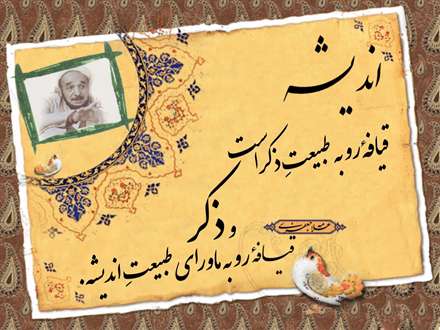 اندیشه
قیافهٔ رو به طبیعتِ ذکر است
و ذکر
قیافهٔ رو به ماورای طبیعتِ اندیشه.